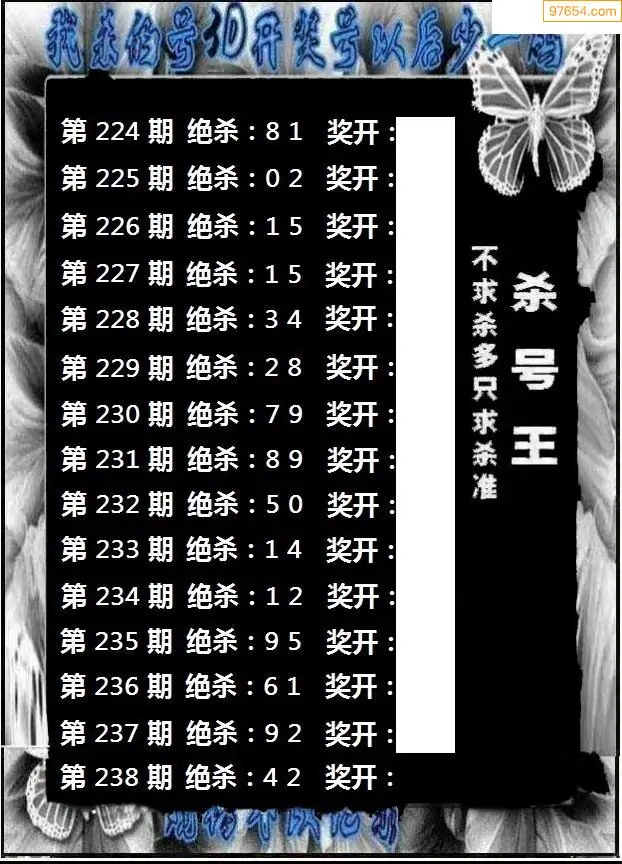 97654.com
我杀的号3D开奖号以后少一码
第 224 期 绝杀：8 1 奖开：
第 225 期 绝杀：0 2 奖开：
第 226 期 绝杀：1 5 奖开：
第 227 期 绝杀：1 5 奖开：
第 228 期 绝杀：3 4 奖开：
第 229 期 绝杀：2 8 奖开：
第 230 期 绝杀：7 9 奖开：
第 231 期 绝杀：8 9 奖开：
第 232 期 绝杀：5 0 奖开：
第 233 期 绝杀：1 4 奖开：
第 234 期 绝杀：1 2 奖开：
第 235 期 绝杀：9 5 奖开：
第 236 期 绝杀：6 1 奖开：
第 237 期 绝杀：9 2 奖开：
第 238 期 绝杀：4 2 奖开：
杀号王
不求杀多只求杀准